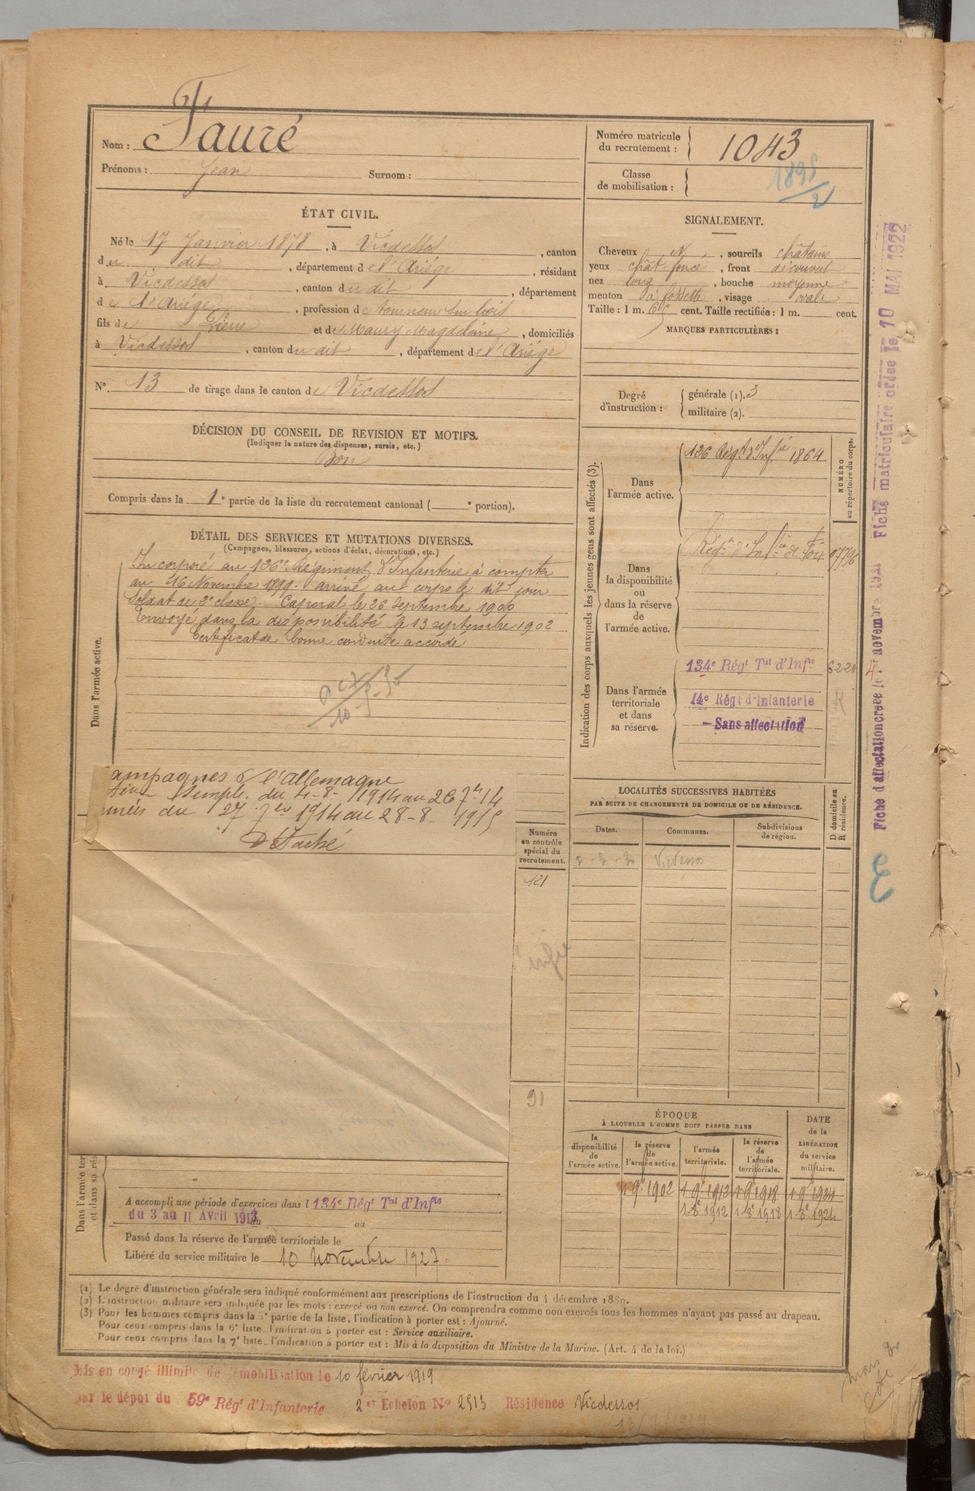 Nom : Fauré
Prénoms : Jean Surnom :
Numéro matricule du recrutement : 1043
Classe de mobilisation : 1898/2
ÉTAT CIVIL.
Né le 17 Janvier 1878, à Vicdessos, canton
du dit, département de l'Ariége, résidant
à Vicdessos, canton du dit, département
de l'Ariège, profession de tourneur sur bois
fils de Pierre et de Maury Magdelaine, domiciliés
à Vicdessos, canton du dit, département de l'Ariége
N° 13 de tirage dans le canton de Vicdessos
SIGNALEMENT.
Cheveux N, sourcils châtains
yeux chât. foncé, front découvert
nez long, bouche moyenne
menton à fossette, visage ovale
Taille : 1 m. cent. Taille rectifiée : 1 m. cent.
MARQUES PARTICULIÈRES :
Degré d'instruction : générale (1). 3
militaire (2).
DÉCISION DU CONSEIL DE REVISION ET MOTIFS.
(Indiquer la nature des dispenses, sursis, etc.)
Bon
Compris dans la 1e partie de la liste du recrutement cantonal ( e portion).
DÉTAIL DES SERVICES ET MUTATIONS DIVERSES.
(Campagnes, blessures, actions d'éclat, décorations, etc.)
Dans l'armée active.
Incorporé au 136e Régiment d'Infanterie à compter
du 16 Novembre 1899. arrivé au corps le dit jour
Soldat de 2e classe. Caporal le 26 Septembre 1900
Envoyé dans la disponibilité le 13 septembre 1902
Certificat de bonne conduite accordé
ampagnes c/ l'allemagne
simple. du 4-8-1914 au 26 7bre 14
du 27 7bre 1914 au 28-8-1915
Détaché
Indication des corps auxquels les jeunes gens sont affectés (3).
NUMÉRO au répertoire du corps.
Dans l'armée active.
136 Régt d'Infie 1864
Dans la disponibilité ou dans la réserve de l'armée active.
Régt d'Infie de
Dans l'armée territoriale et dans sa réserve.
134e Régt Tal d'Infie
14e Régt d'Infanterie
Sans affectation
Numéro au contrôle spécial du recrutement.
121
91
LOCALITÉS SUCCESSIVES HABITÉES
PAR SUITE DE CHANGEMENTS DE DOMICILE OU DE RÉSIDENCE.
Dates. Communes. Subdivisions de région. D domicile ou R résidence.
Vicdessos
ÉPOQUE
À LAQUELLE L'HOMME DOIT PASSER DANS
la disponibilité de l'armée active.
la réserve de l'armée active.
l'armée territoriale.
la réserve de l'armée territoriale.
DATE de la LIBÉRATION du service militaire.
1 9e 1902 1 9e 1912 1 9e 1918 1 9e 1924
1 8e 1912 1 8e 1918 1 8e 1924
A accompli une période d'exercices dans l 134e Régt Tal d'Infie
du 3 au 11 Avril 1913
Passé dans la réserve de l'armée territoriale le
Libéré du service militaire le 10 novembre 1927.
(1) Le degré d'instruction générale sera indiqué conformément aux prescriptions de l'instruction du 4 décembre 1889.
(2) L'instruction militaire sera indiquée par les mots : exercé ou non exercé. On comprendra comme non exercés tous les hommes n'ayant pas passé au drapeau.
(3) Pour les hommes compris dans la 5e partie de la liste, l'indication à porter est : Ajourné.
Pour ceux compris dans la 6e liste, l'indication à porter est : Service auxiliaire.
Pour ceux compris dans la 7e liste, l'indication à porter est : Mis à la disposition du Ministre de la Marine. (Art. 4 de la loi.)
Mis en congé illimité de démobilisation le 10 février 1919
par le dépôt du 59e Régt d'Infanterie 2 er Echelon No 2513 Résidence Vicdessos
Fiche d'affectation créée le novembre 1921 Fiche matriculaire créée le 10 MAI 1922
3